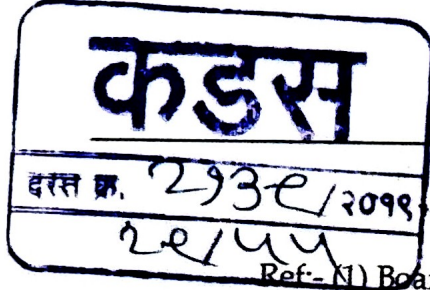 कडस
दस्त क्र. २१३९/२०१९
२९/५५
Ref:- (1) Boa